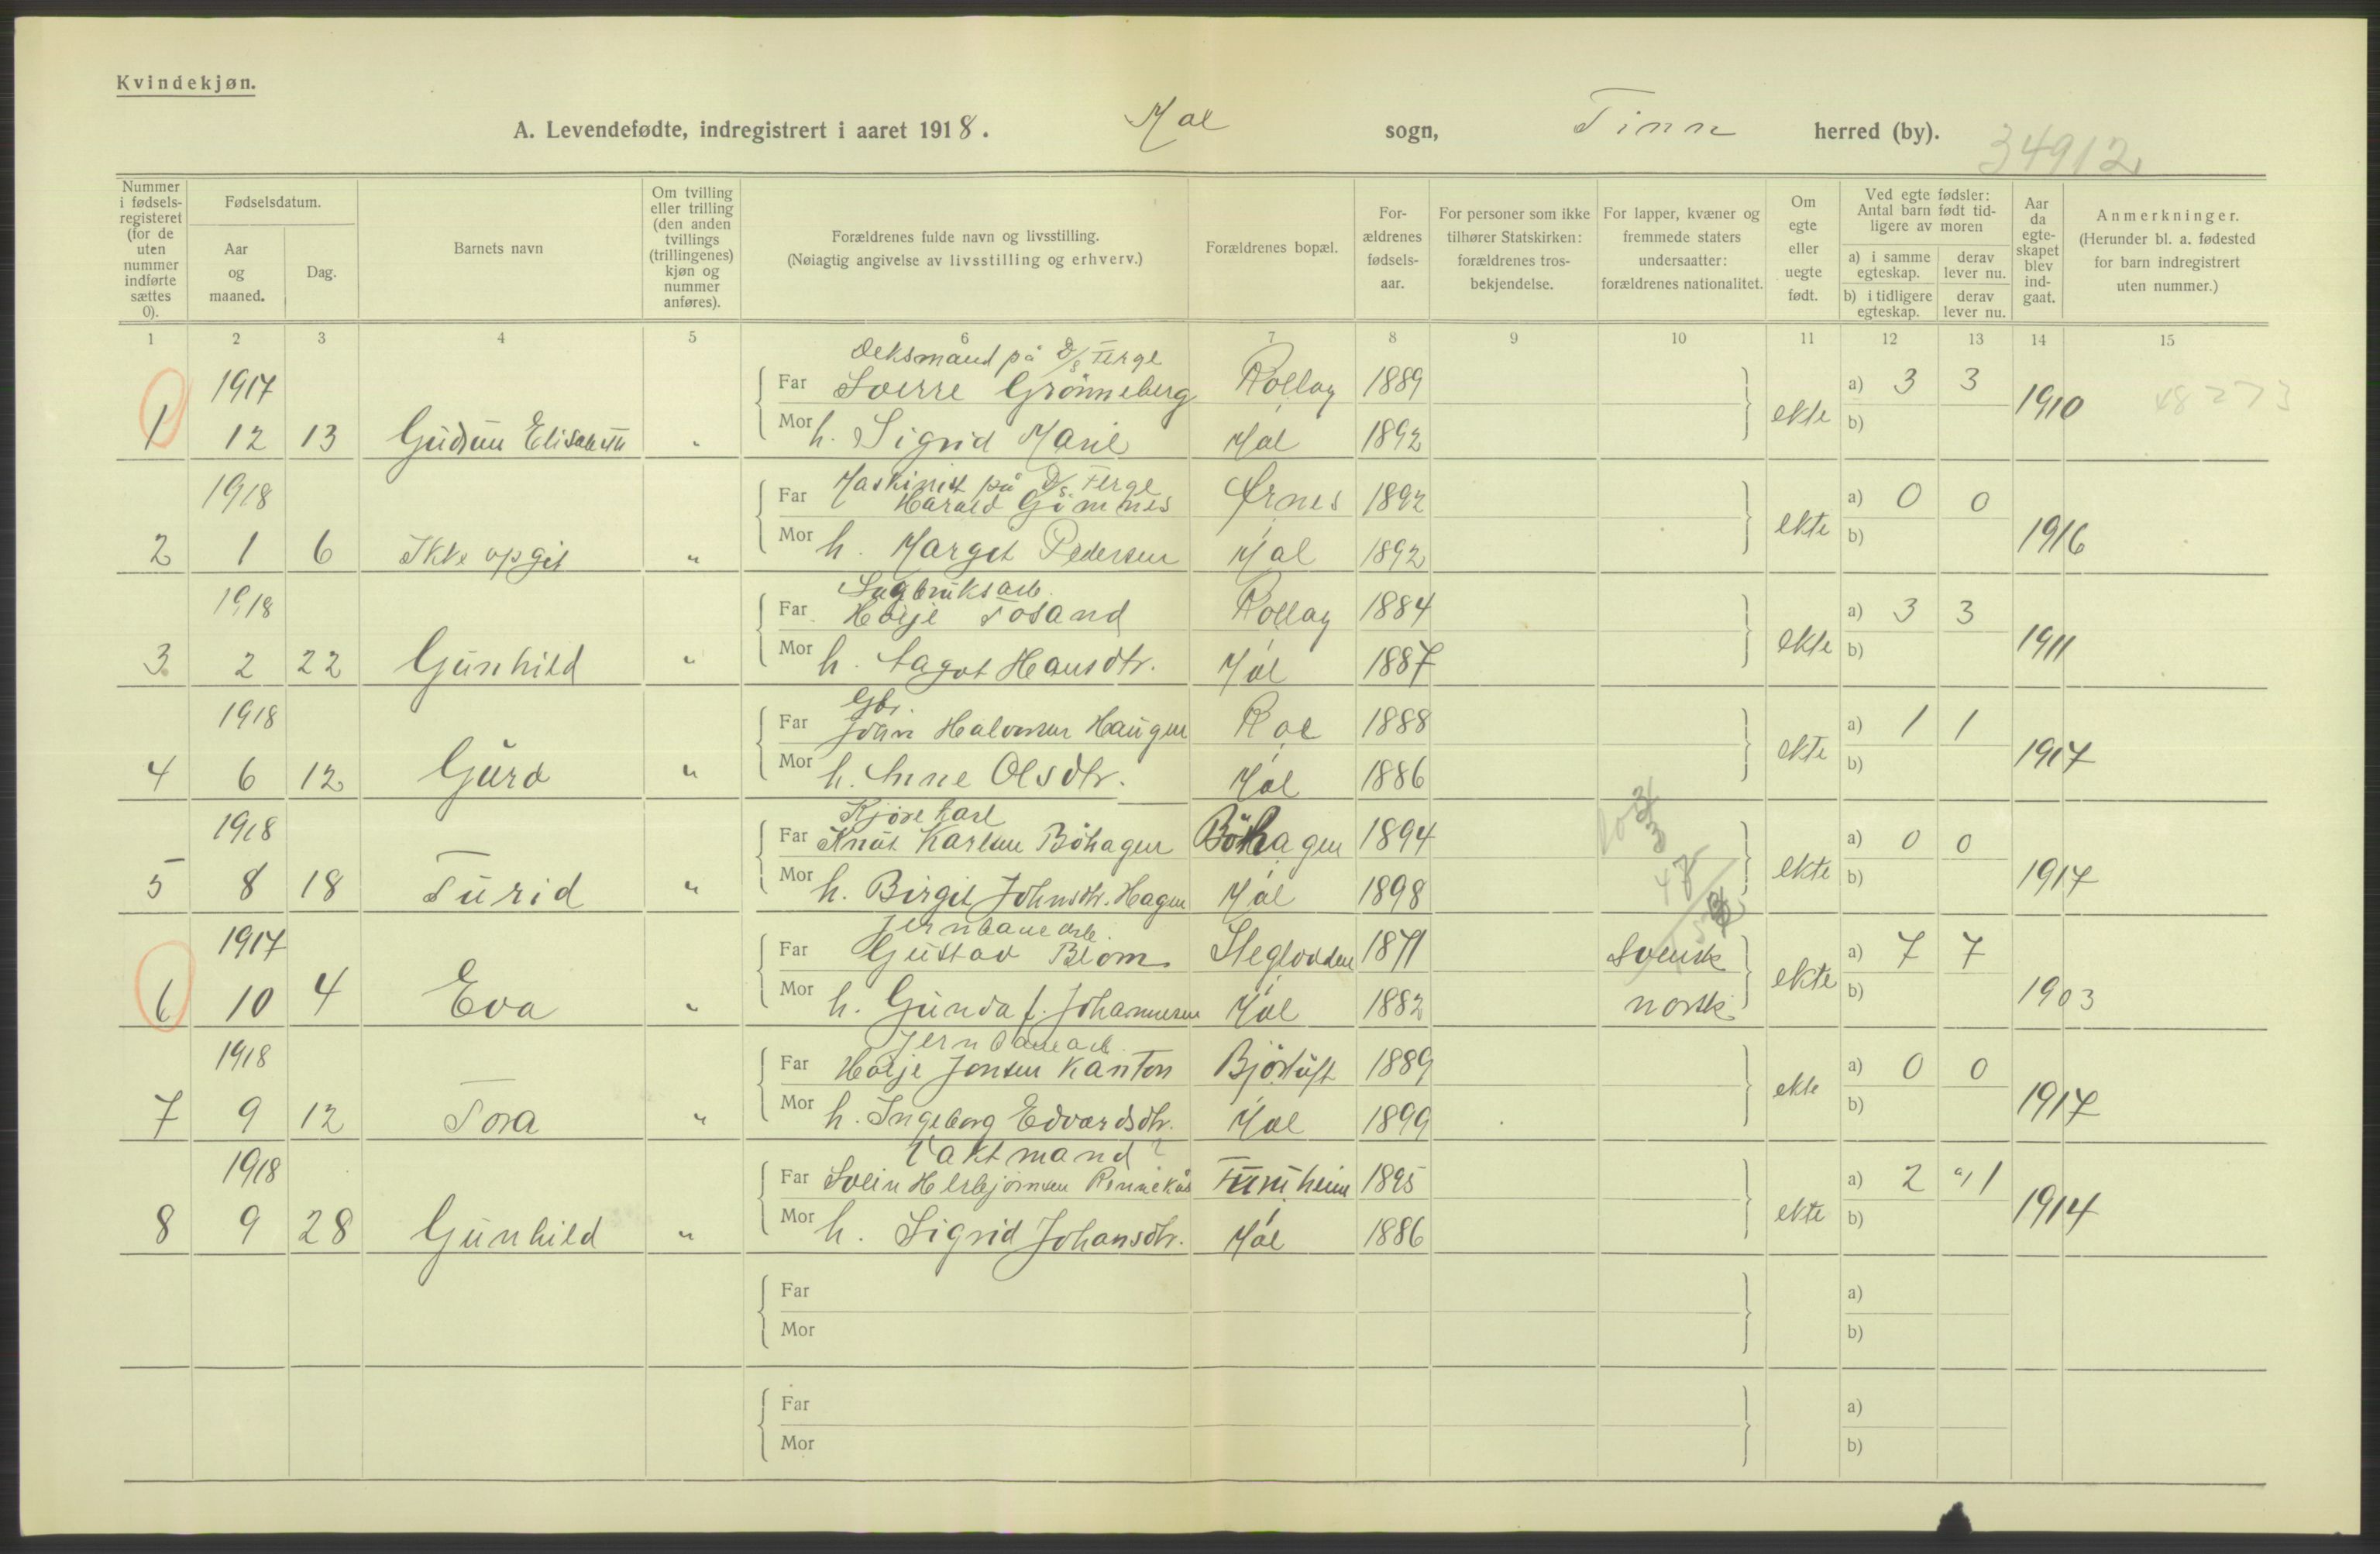 Kvindekjøn.
A. Levendefødte, indregistrert i aaret 1918. Mæl sogn, Tinn herred (by).
34912
Nummer i fødsels-registeret (for de uten nummer indførte sættes 0).
Fødselsdatum.
Aar og maaned.
Dag.
Barnets navn
Om tvilling eller trilling (den anden tvillings (trillingenes) kjøn og nummer anføres).
Forældrenes fulde navn og livsstilling.
(Nøiagtig angivelse av livsstilling og erhverv.)
Forældrenes bopæl.
For-ældrenes fødsels-aar.
For personer som ikke tilhører Statskirken: forældrenes tros-bekjendelse.
For lapper, kvæner og fremmede staters undersaatter: forældrenes nationalitet.
Om egte eller uegte født.
Ved egte fødsler: Antal barn født tid-ligere av moren
a) i samme egteskap. derav lever nu.
b) i tidligere egteskap. derav lever nu.
Aar da egte-skapet blev ind-gaat.
Anmerkninger.
(Herunder bl. a. fødested for barn indregistrert uten nummer.)
1 2 3 4 5 6 7 8 9 10 11 12 13 14 15
Deksmand på D/S Ferge
1917 Far Sverre Grönneberg Rollag 1889 a) 3 3
1 12 13 Gudrun Elisabeth " Mor h. Sigrid Marie Mæl 1892 ekte b) 1910
Maskinist på D/S. Ferge
1918 Far Harald Gimnes Ørnes 1892 a) 0 0
2 1 6 Ikke opgit " Mor h. Margit Pedersen Mæl 1892 ekte b) 1916
Sagbruksarb.
1918 Far Holje Fosand Rollag 1884 a) 3 3
3 2 22 Gunhild " Mor h. Aagot Hansdtr. Mæl 1887 ekte b) 1911
Gbr.
1918 Far John Halvorsen Haugen 1888 a) 1 1
4 6 12 Guro " Mor h. Anne Olsdtr. Mæl 1886 ekte b) 1917
Kjörekarl
1918 Far Knut Karlsen Böhagen Böhagen 1894 a) 0 0
5 8 18 Turid " Mor h. Birgit Johnsdtr. Hagen Mæl 1898 ekte b) 1917
Jernbanearb.
1917 Far Gustav Blom 1871 Svensk a) 7 7
6 10 4 Eva " Mor h. Gunda f. Johannesen Mæl 1882 norsk ekte b) 1903
Jernbanearb.
1918 Far Holje Jonsen Kanton Bjørtuft 1889 a) 0 0
7 9 12 Tora " Mor h. Ingeborg Edvardsdtr. Mæl 1899 ekte b) 1917
Vaktmand
1918 Far Svein 1895 a) 2 a) 1
8 9 28 Gunhild " Mor h. Sigrid Johansdtr. Mæl 1886 ekte b) 1914
Far a)
Mor b)
Far a)
Mor b)